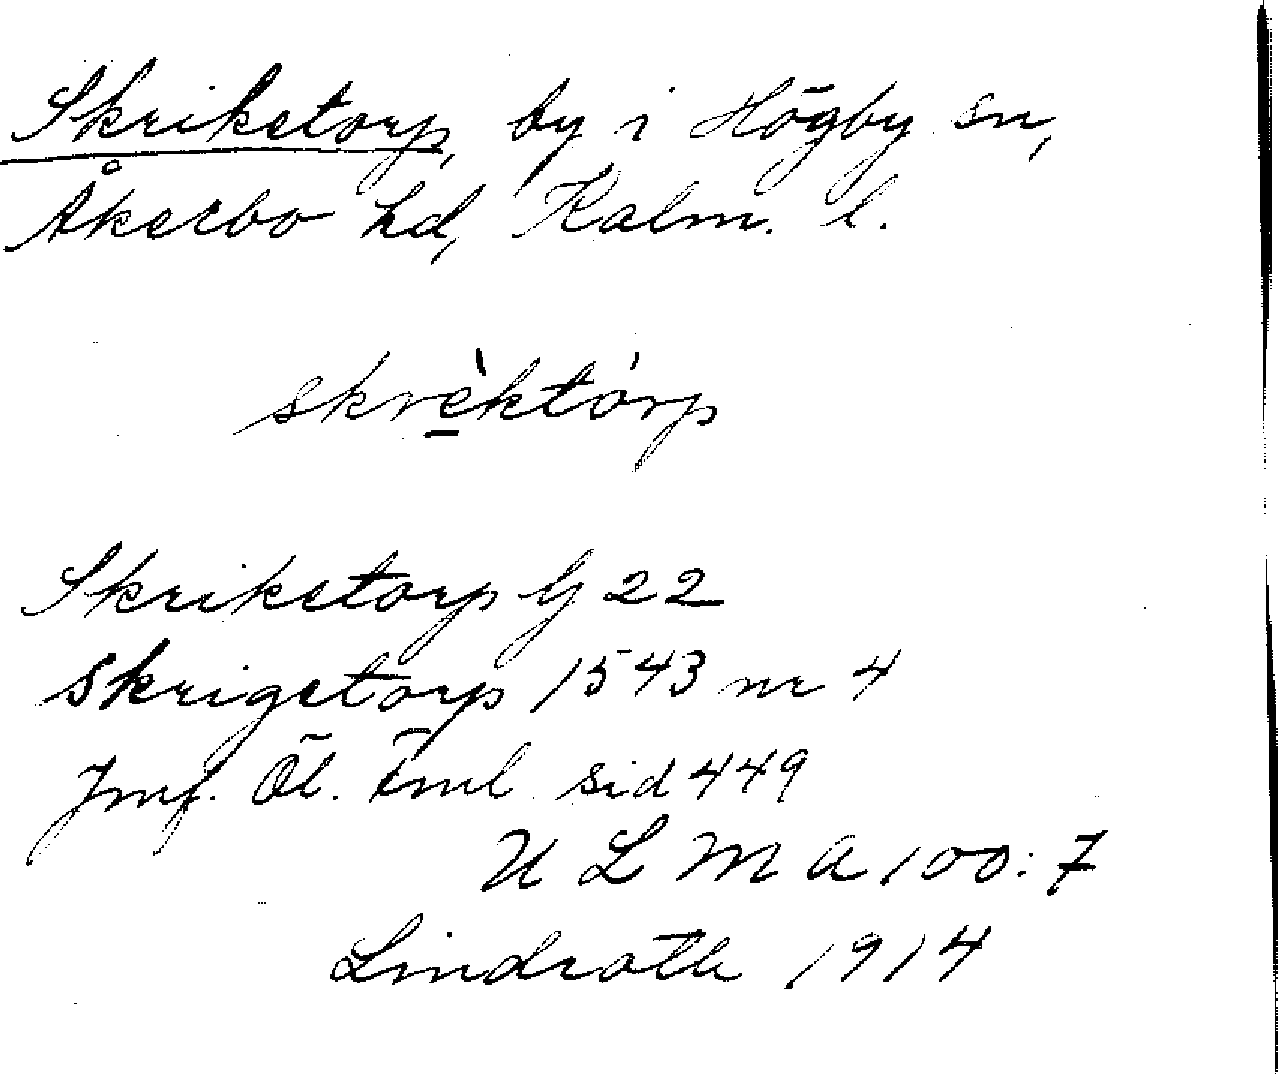 Skriketorp, by i Högby sn,
Åkerbo hd, Kalm. l.
skrèktórp
Skriketorp G 22
Skrigetorp 1543 nr 4
Jmf. Öl. Fml sid 449
U L M A 100:7
Lindroth 1914